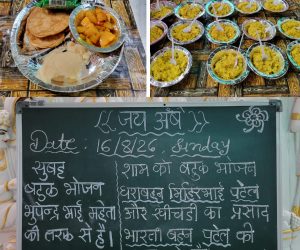 जय अंबे
Date: 16/8/26, Sunday
सुबह
बटुक भोजन
भुपेन्द्र भाई महेता
की तरफ से है।
शाम को बटुक भोजन
धराबहन मिहिरभाई पटेल
और खीचडी का प्रसाद
भारती बहन पटेल की